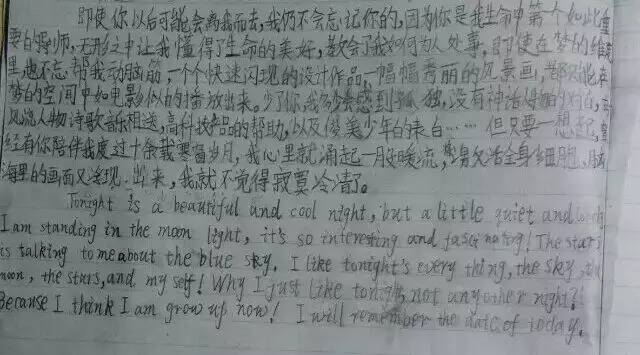 即使你以后可能会离我而去,我仍不会忘记你的,因为你是我生命中第一个如此重
要的导师,无形之中让我懂得了生命的美好,教会了我如何为人处事,即使在梦的
里也不忘帮我动脑筋,一个个快速闪现的设计作品,一幅幅秀丽的风景画,都能在
梦的空间中如电影似的播放出来。少了你,我会感到孤独,没有神话般的对白,
风流人物诗歌音乐相送,高科技产品的帮助,以及俊美少年的表白……但只要一想起,
经有你陪伴我度过十余载寒窗岁月,我心里就涌起一股暖流,全身细胞,脑
海里的画面又浮现出来,我就不觉得寂寞冷清了。
Tonight is a beautiful and cool night, but a little quiet and
I am standing in the moon light, it's so interesting and fascinating! The stars
is talking to me about the blue sky. I like tonight's every thing, the sky, the
moon, the stars, and my self! Why I just like tonight, not anyother night?!
Because I think I am grow up now! I will remember the date of today.